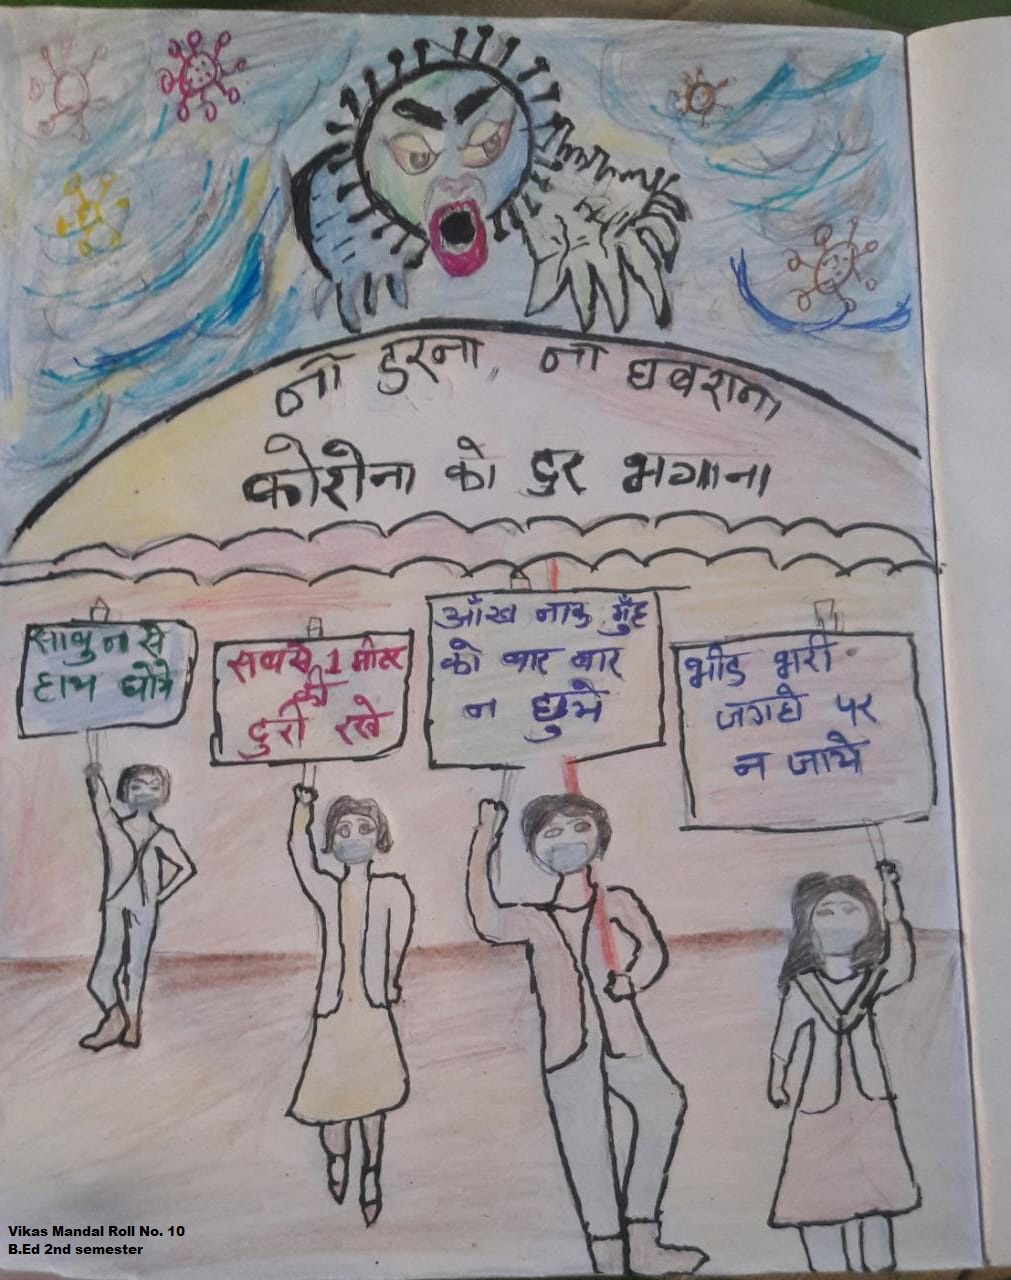 ना डरना, ना घबराना,
कोरोना को दुर भगाना
साबुन से
हाथ धोये
सबसे 1 मीटर
की
दुरी रखे
आँख नाक मुँह
को बार बार
न छुये
भीड भरी
जगहो पर
न जाये
Vikas Mandal Roll No. 10
B.Ed 2nd semester